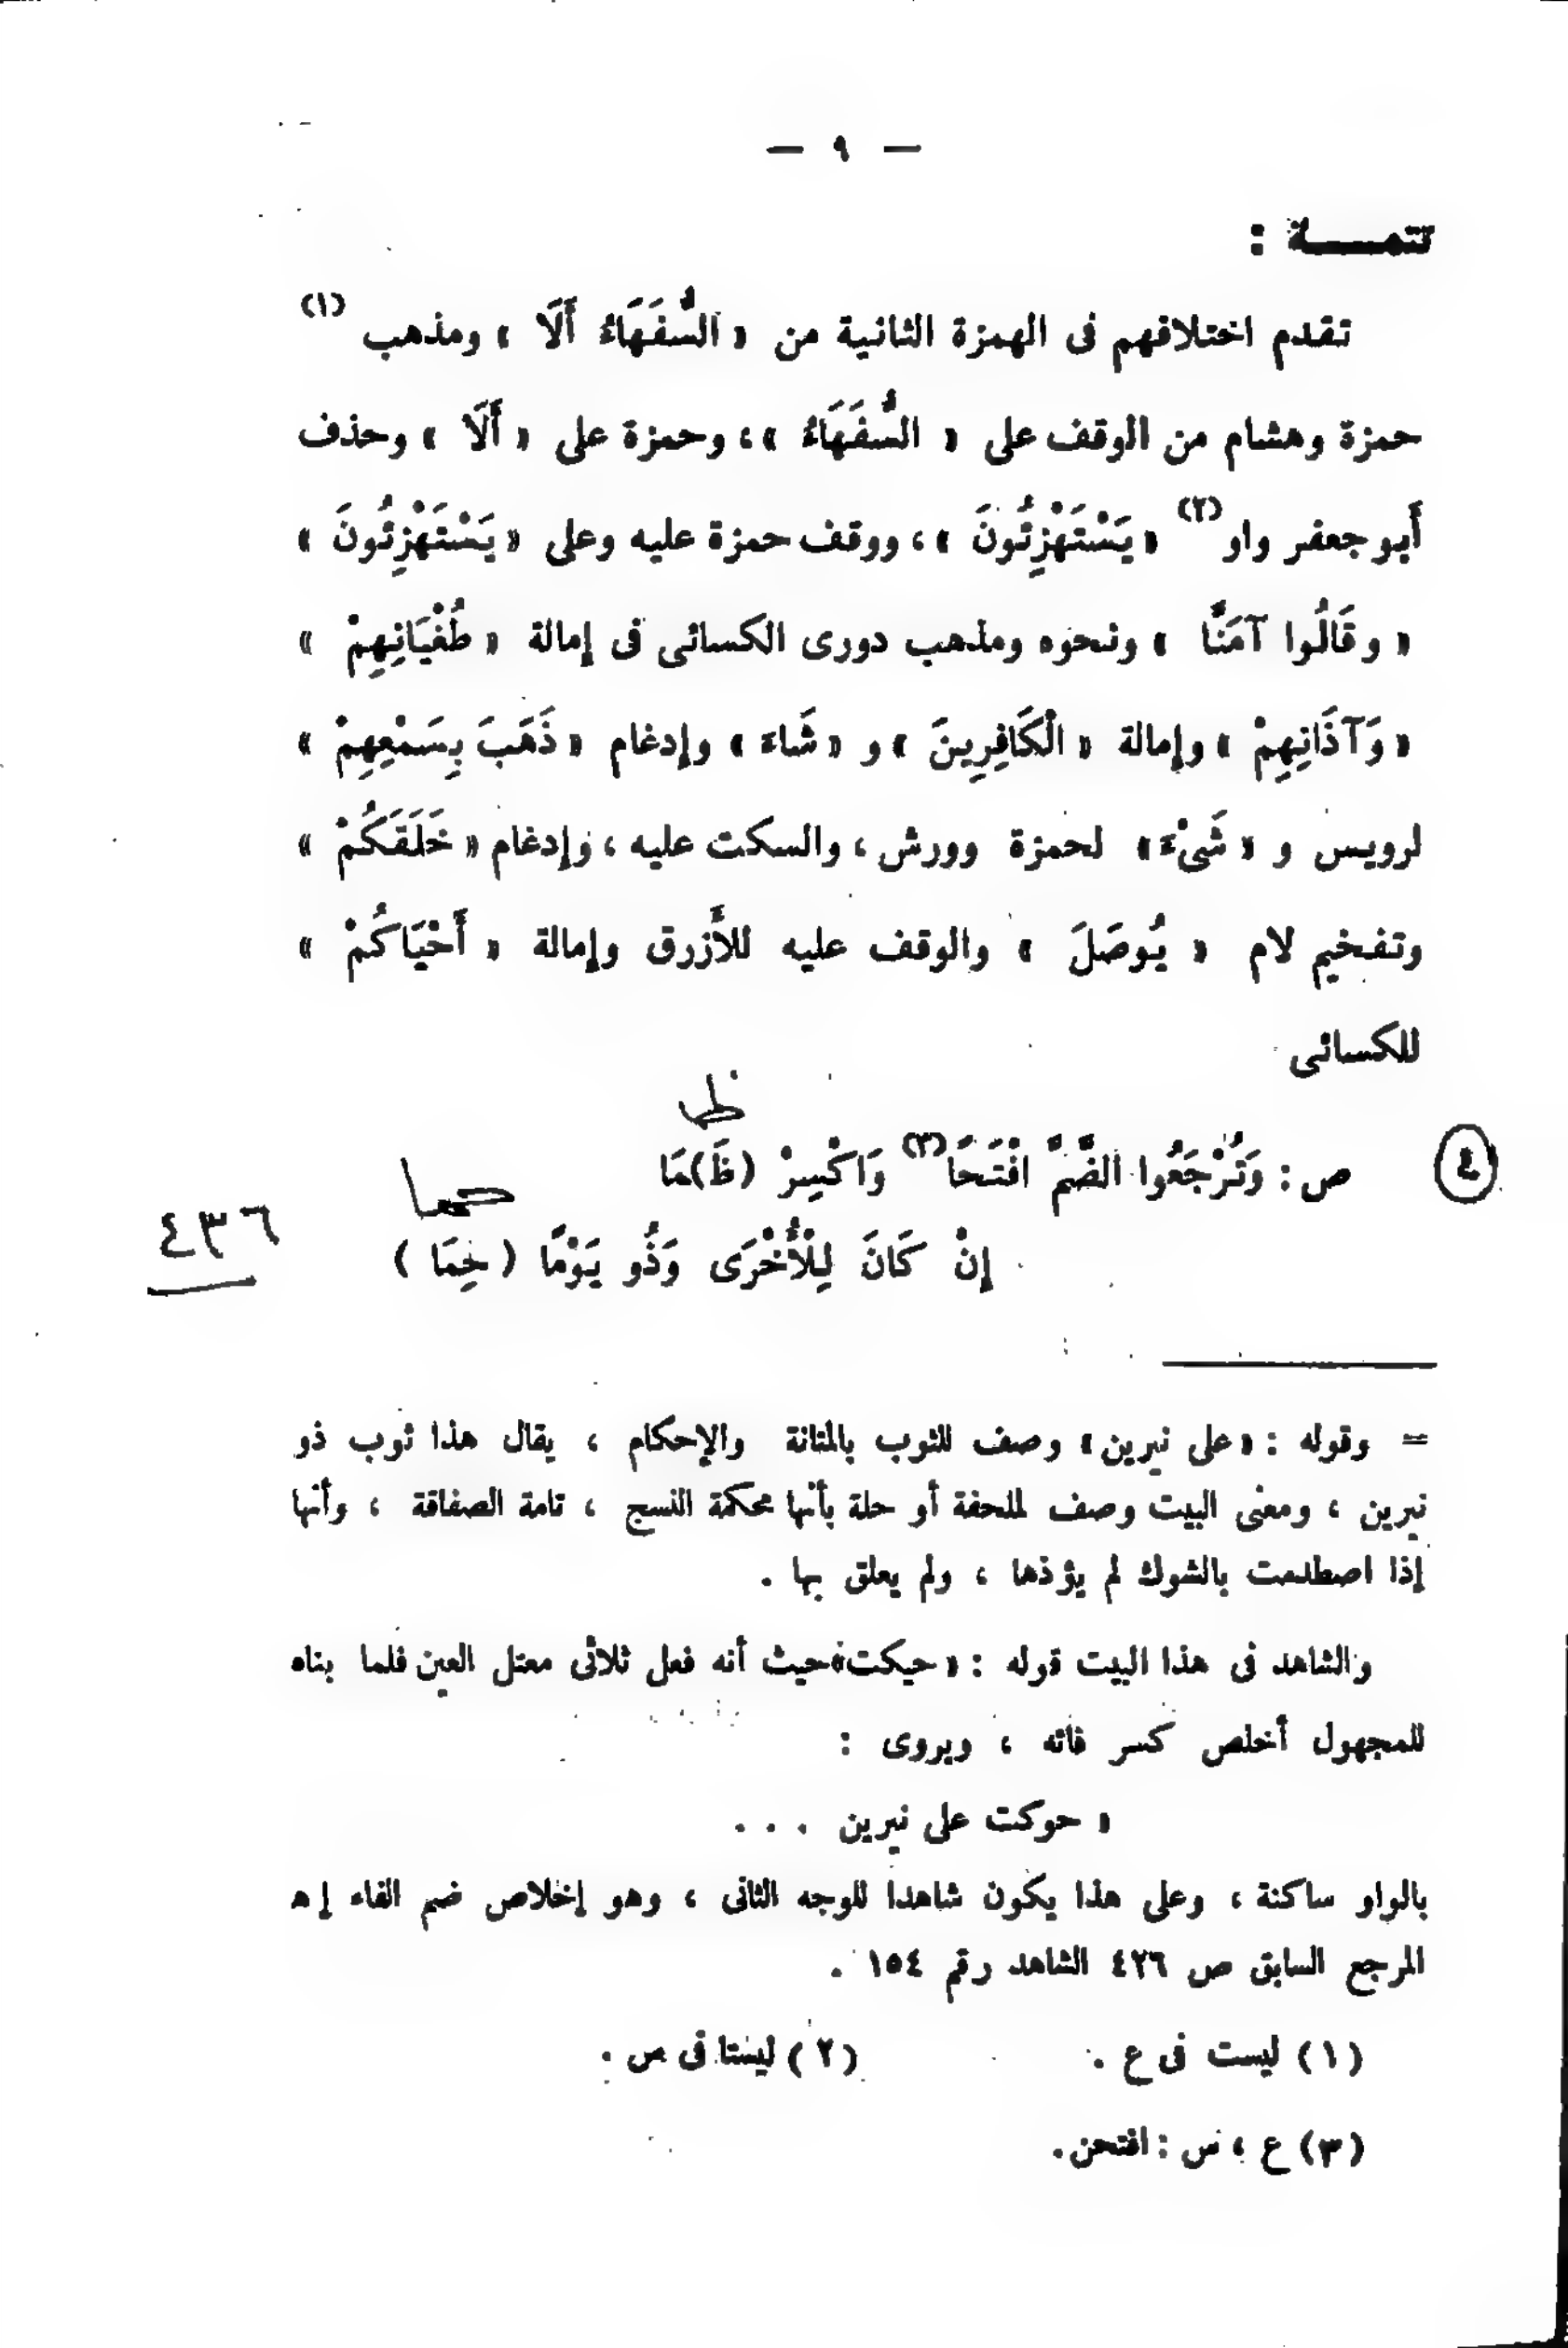 — ٩ —
تتمـــــة :
تقدم اختلافهم فى الهمزة الثانية من « السُّفَهَاءُ أَلَا » ومذهب (١)
حمزة وهشام من الوقف على « السُّفَهَاءُ » ، وحمزة على « أَلَا » وحذف
أَبو جعفر واو (٢) « يَسْتَهْزِئُونَ » ، ووقف حمزة عليه وعلى « يَسْتَهْزِئُونَ »
« وقَالُوا آمَنَّا » ونحوه ومذهب دورى الكسائى فى إمالة « طُغْيَانِهِمْ »
« وَآذَانِهِمْ » وإمالة « الْكَافِرِينَ » و « شَاءَ » وإدغام « ذَهَبَ بِسَمْعِهِمْ »
لرويس و « شَىْءٍ » لحمزة وورش ، والسكت عليه ، وإدغام « خَلَقَكُمْ »
وتفخيم لام « يُوصَلَ » والوقف عليه للأَزرق وإمالة « أَحْيَاكُمْ »
للكسائى
ظما
٤ ص : وَتُرْجَعُوا الضَّمَّ افْتَحَا (٣) وَاكْسِرْ (ظَ)مَا
حما
إِنْ كَانَ لِلْأُخْرَى وَذُو يَوْمًا ( حِمَا )
٤٣٦
= وقوله : « على نيرين » وصف للثوب بالمتانة والإحكام ، يقال هذا ثوب ذو
نيرين ، ومعنى البيت وصف لملحفة أو حلة بأنها محكمة النسج ، تامة الصفاقة ، وأنها
إذا اصطدمت بالشوك لم يؤذها ، ولم يعلق بها .
والشاهد فى هذا البيت قوله : « حيكت » حيث أنه فعل ثلاثى معتل العين فلما بناه
للمجهول أخلص كسر فائه ، ويروى :
« حوكت على نيرين . . .
بالواو ساكنة ، وعلى هذا يكون شاهدا للوجه الثانى ، وهو إخلاص ضم الفاء إ ه
المرجع السابق ص ٤٢٦ الشاهد رقم ١٥٤ .
(١) ليست فى ع . (٢) ليستا فى س .
(٣) ع ، س : افتحن .